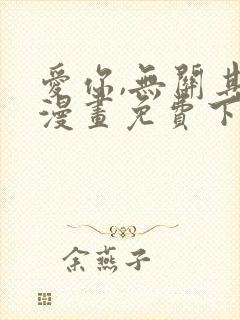 愛你,無關其
漫畫免費下
余燕子